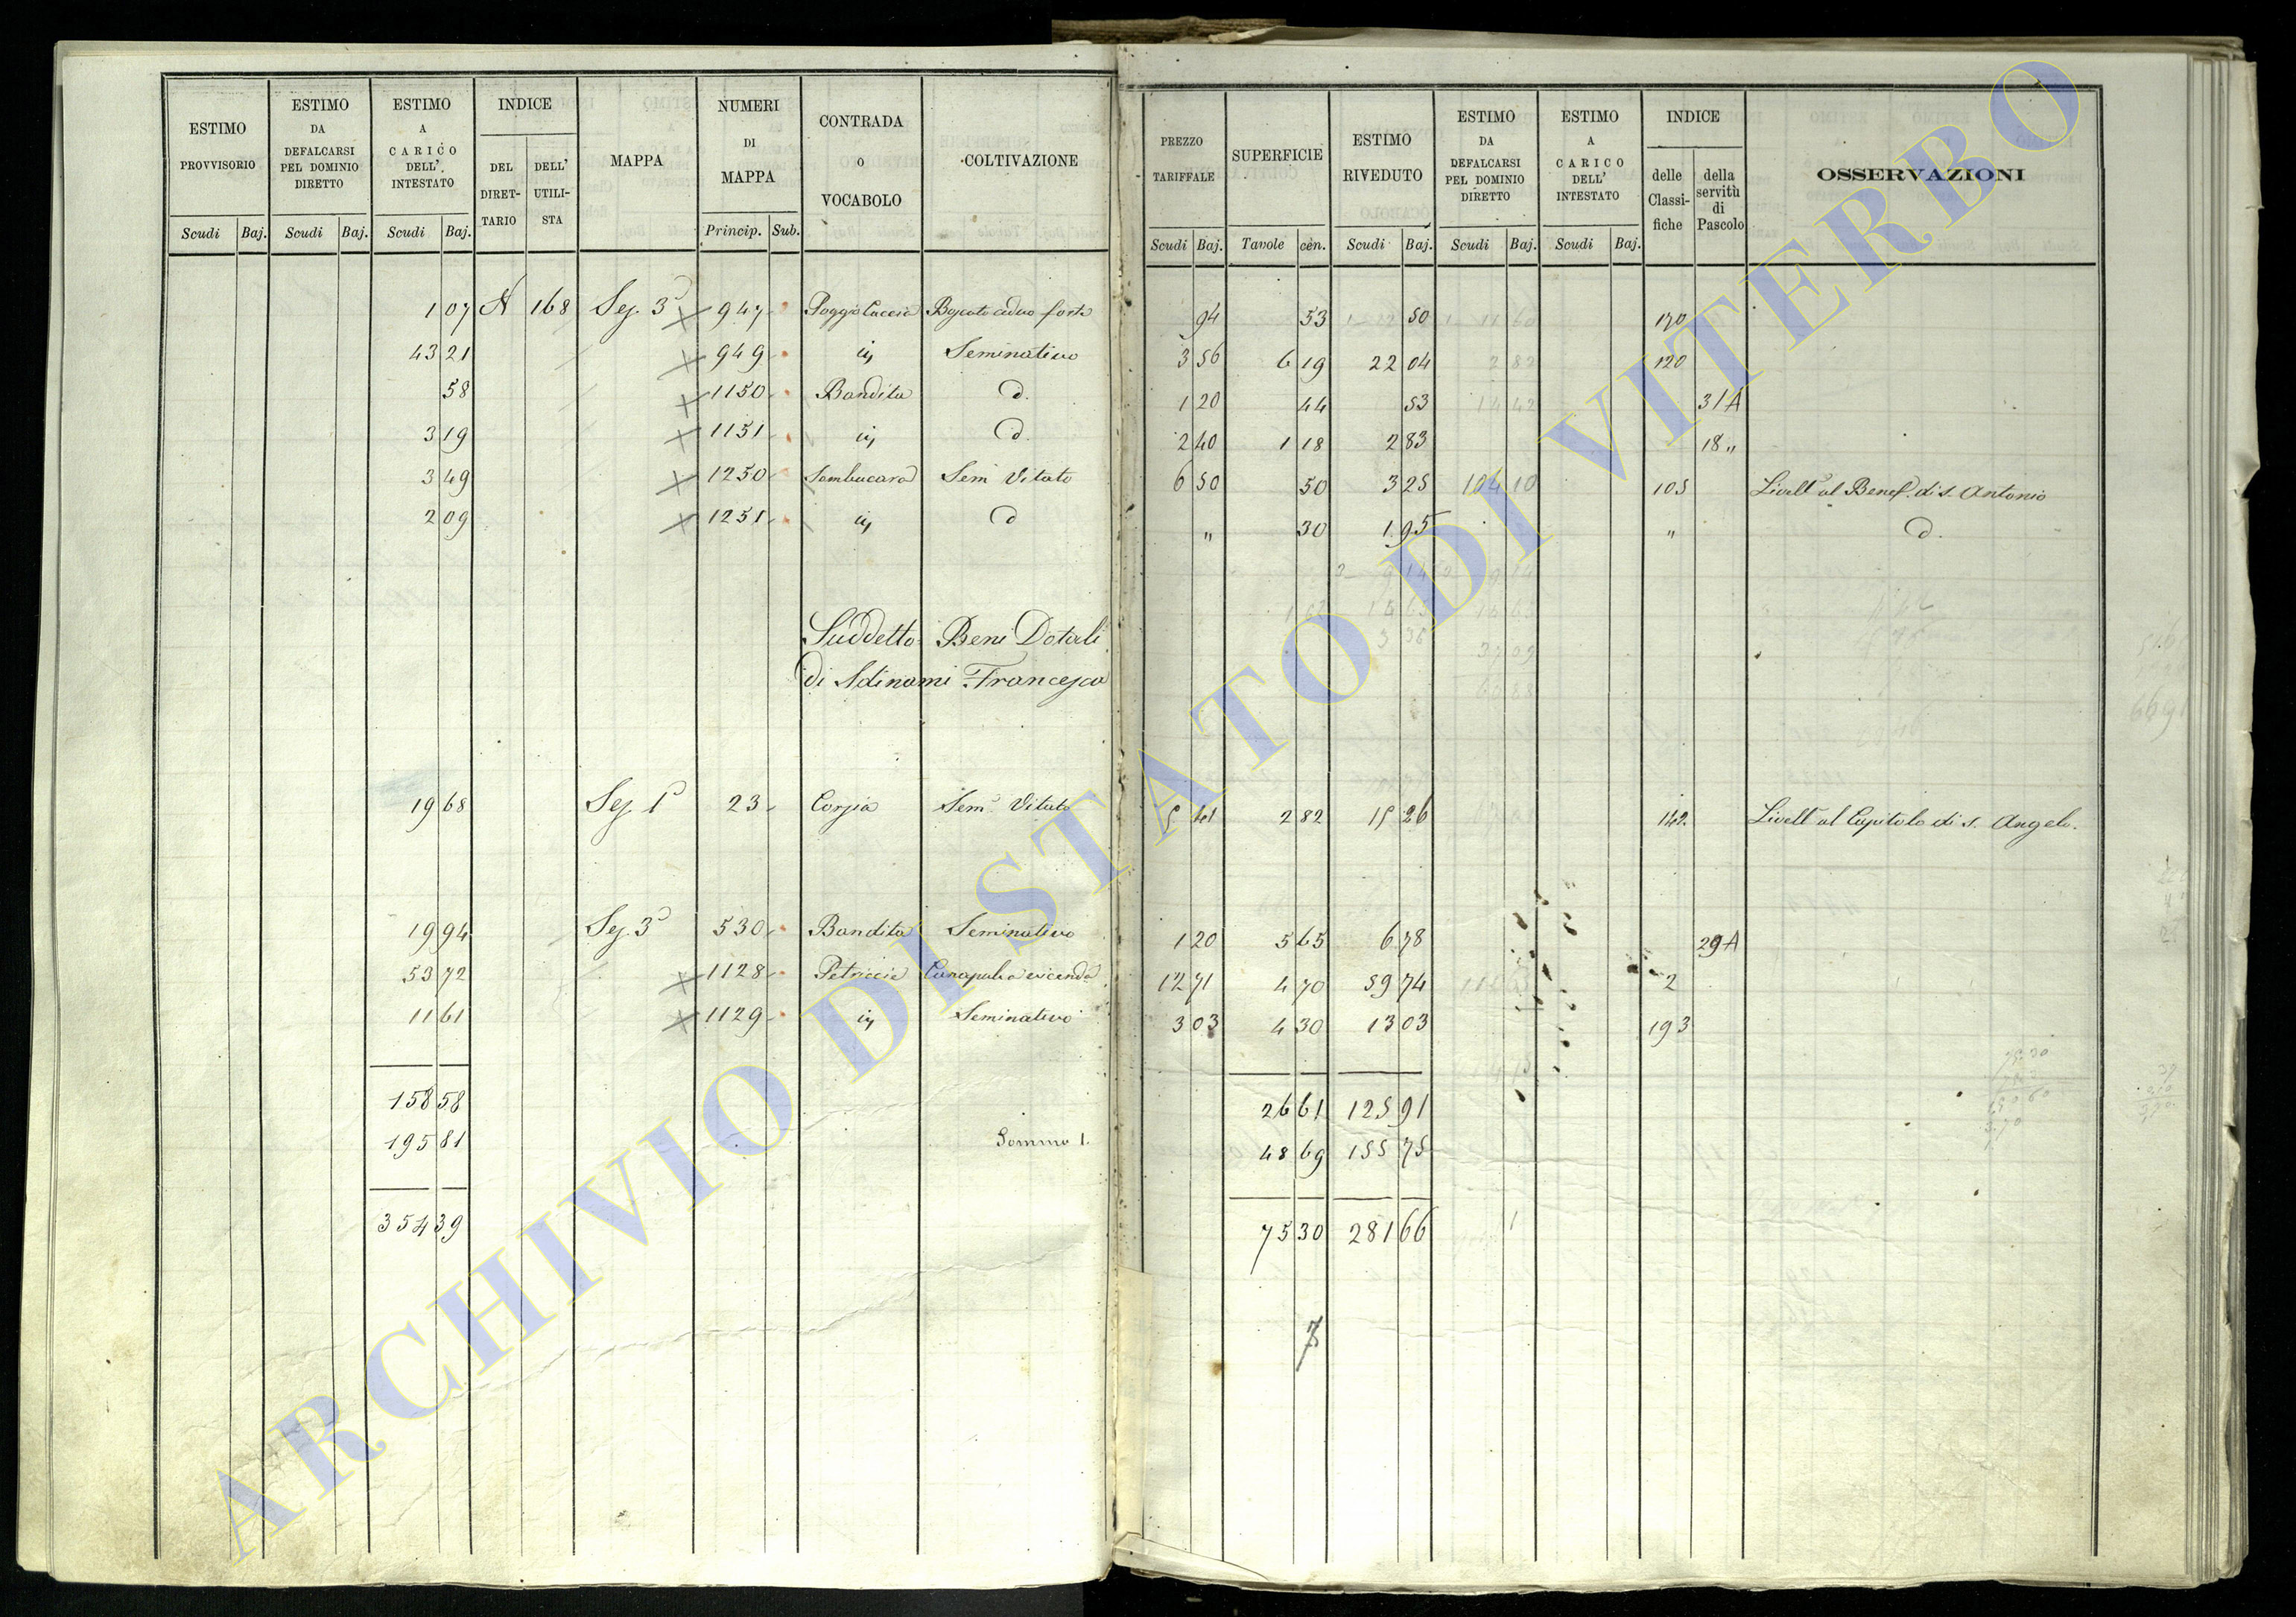 ESTIMO PROVVISORIO | ESTIMO DA DEFALCARSI PEL DOMINIO DIRETTO | ESTIMO A CARICO DELL' INTESTATO | INDICE DEL DIRETTARIO | DELL' UTILISTA | MAPPA | NUMERI DI MAPPA | CONTRADA O VOCABOLO | COLTIVAZIONE | PREZZO TARIFFALE | SUPERFICIE | ESTIMO RIVEDUTO | ESTIMO DA DEFALCARSI PEL DOMINIO DIRETTO | ESTIMO A CARICO DELL' INTESTATO | INDICE delle Classifiche | della servitù di Pascolo | OSSERVAZIONI
Scudi Baj. | Scudi Baj. | Scudi Baj. | Princip. Sub. | Scudi Baj. | Tavole cen. | Scudi Baj. | Scudi Baj. | Scudi Baj.
1 07 168 Sez. 3ª 947 Poggio Boscato ceduo forte 94 53 50 170
43 21 949 Seminativo 3 56 6 19 22 04 120
58 1150 Bandita d. 1 20 44 53 31A
3 19 1151 d. 2 40 1 18 2 83 18 "
3 49 1250 Sambucara Sem Vitato 6 50 50 3 25 105 Livell° al Benef. di S. Antonio
2 09 1251 d " 30 1 95 " d.
Suddetto Beni Dotali
di Francesca
19 68 Sez. 1ª 23 Sem° Vitato 5 41 2 82 15 26 142 Livell° al Capitolo di S. Angelo.
19 94 Sez. 3ª 530 Bandita Seminativo 1 20 5 65 6 78 29A
53 72 1128 Petriccie Canapule a vicenda 12 71 4 70 59 74 2
11 61 1129 Seminativo 3 03 4 30 13 03 193
158 58 26 61 125 91
195 81 Somma 1. 48 69 155 75
354 39 75 30 281 66
ARCHIVIO DI STATO DI VITERBO